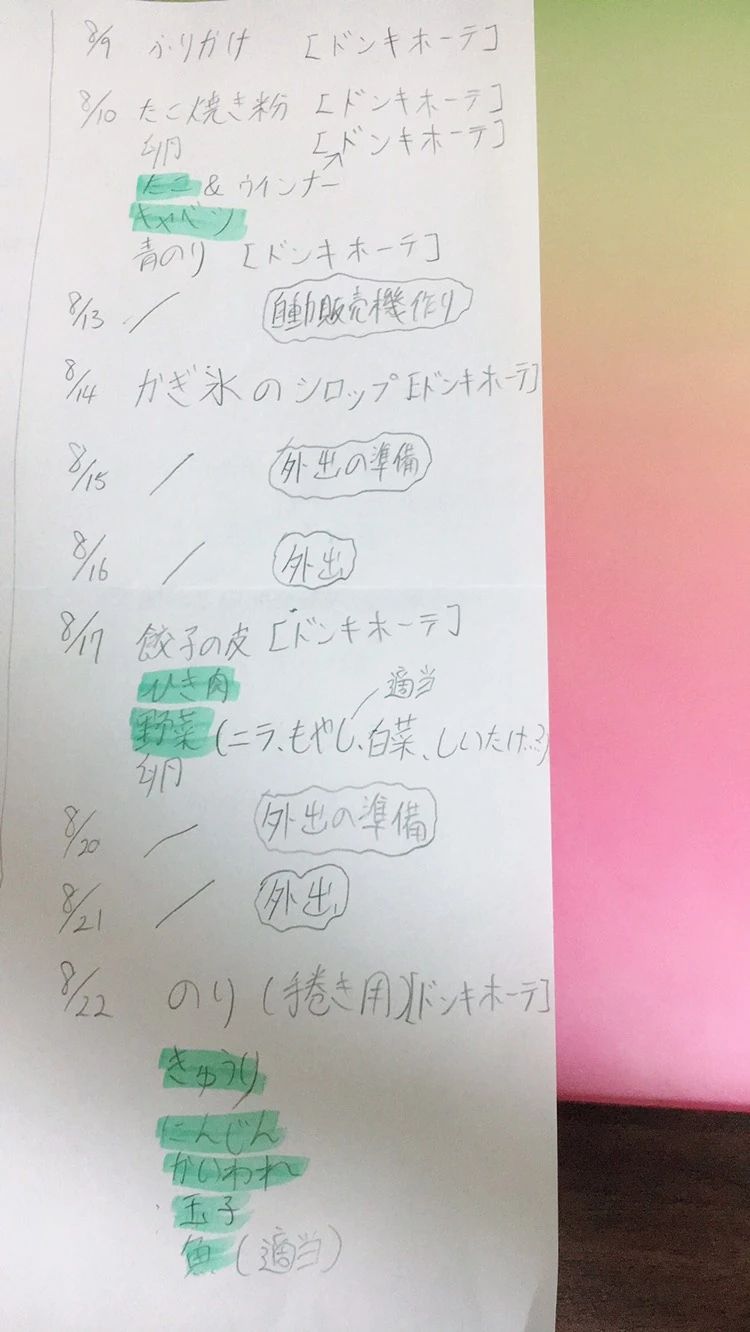 8/9 ふりかけ [ドンキホーテ]
8/10 たこ焼き粉 [ドンキホーテ]
卵 [ドンキホーテ]
たこ & ウインナー
キャベツ
青のり [ドンキホーテ]
8/13 / 自動販売機作り
8/14 かき氷のシロップ[ドンキホーテ]
8/15 / 外出の準備
8/16 / 外出
8/17 餃子の皮 [ドンキホーテ]
ひき肉
適当
野菜 (ニラ、もやし、白菜、しいたけ…?)
卵
8/20 / 外出の準備
8/21 / 外出
8/22 のり (手巻き用)[ドンキホーテ]
きゅうり
にんじん
かいわれ
玉子
魚 (適当)